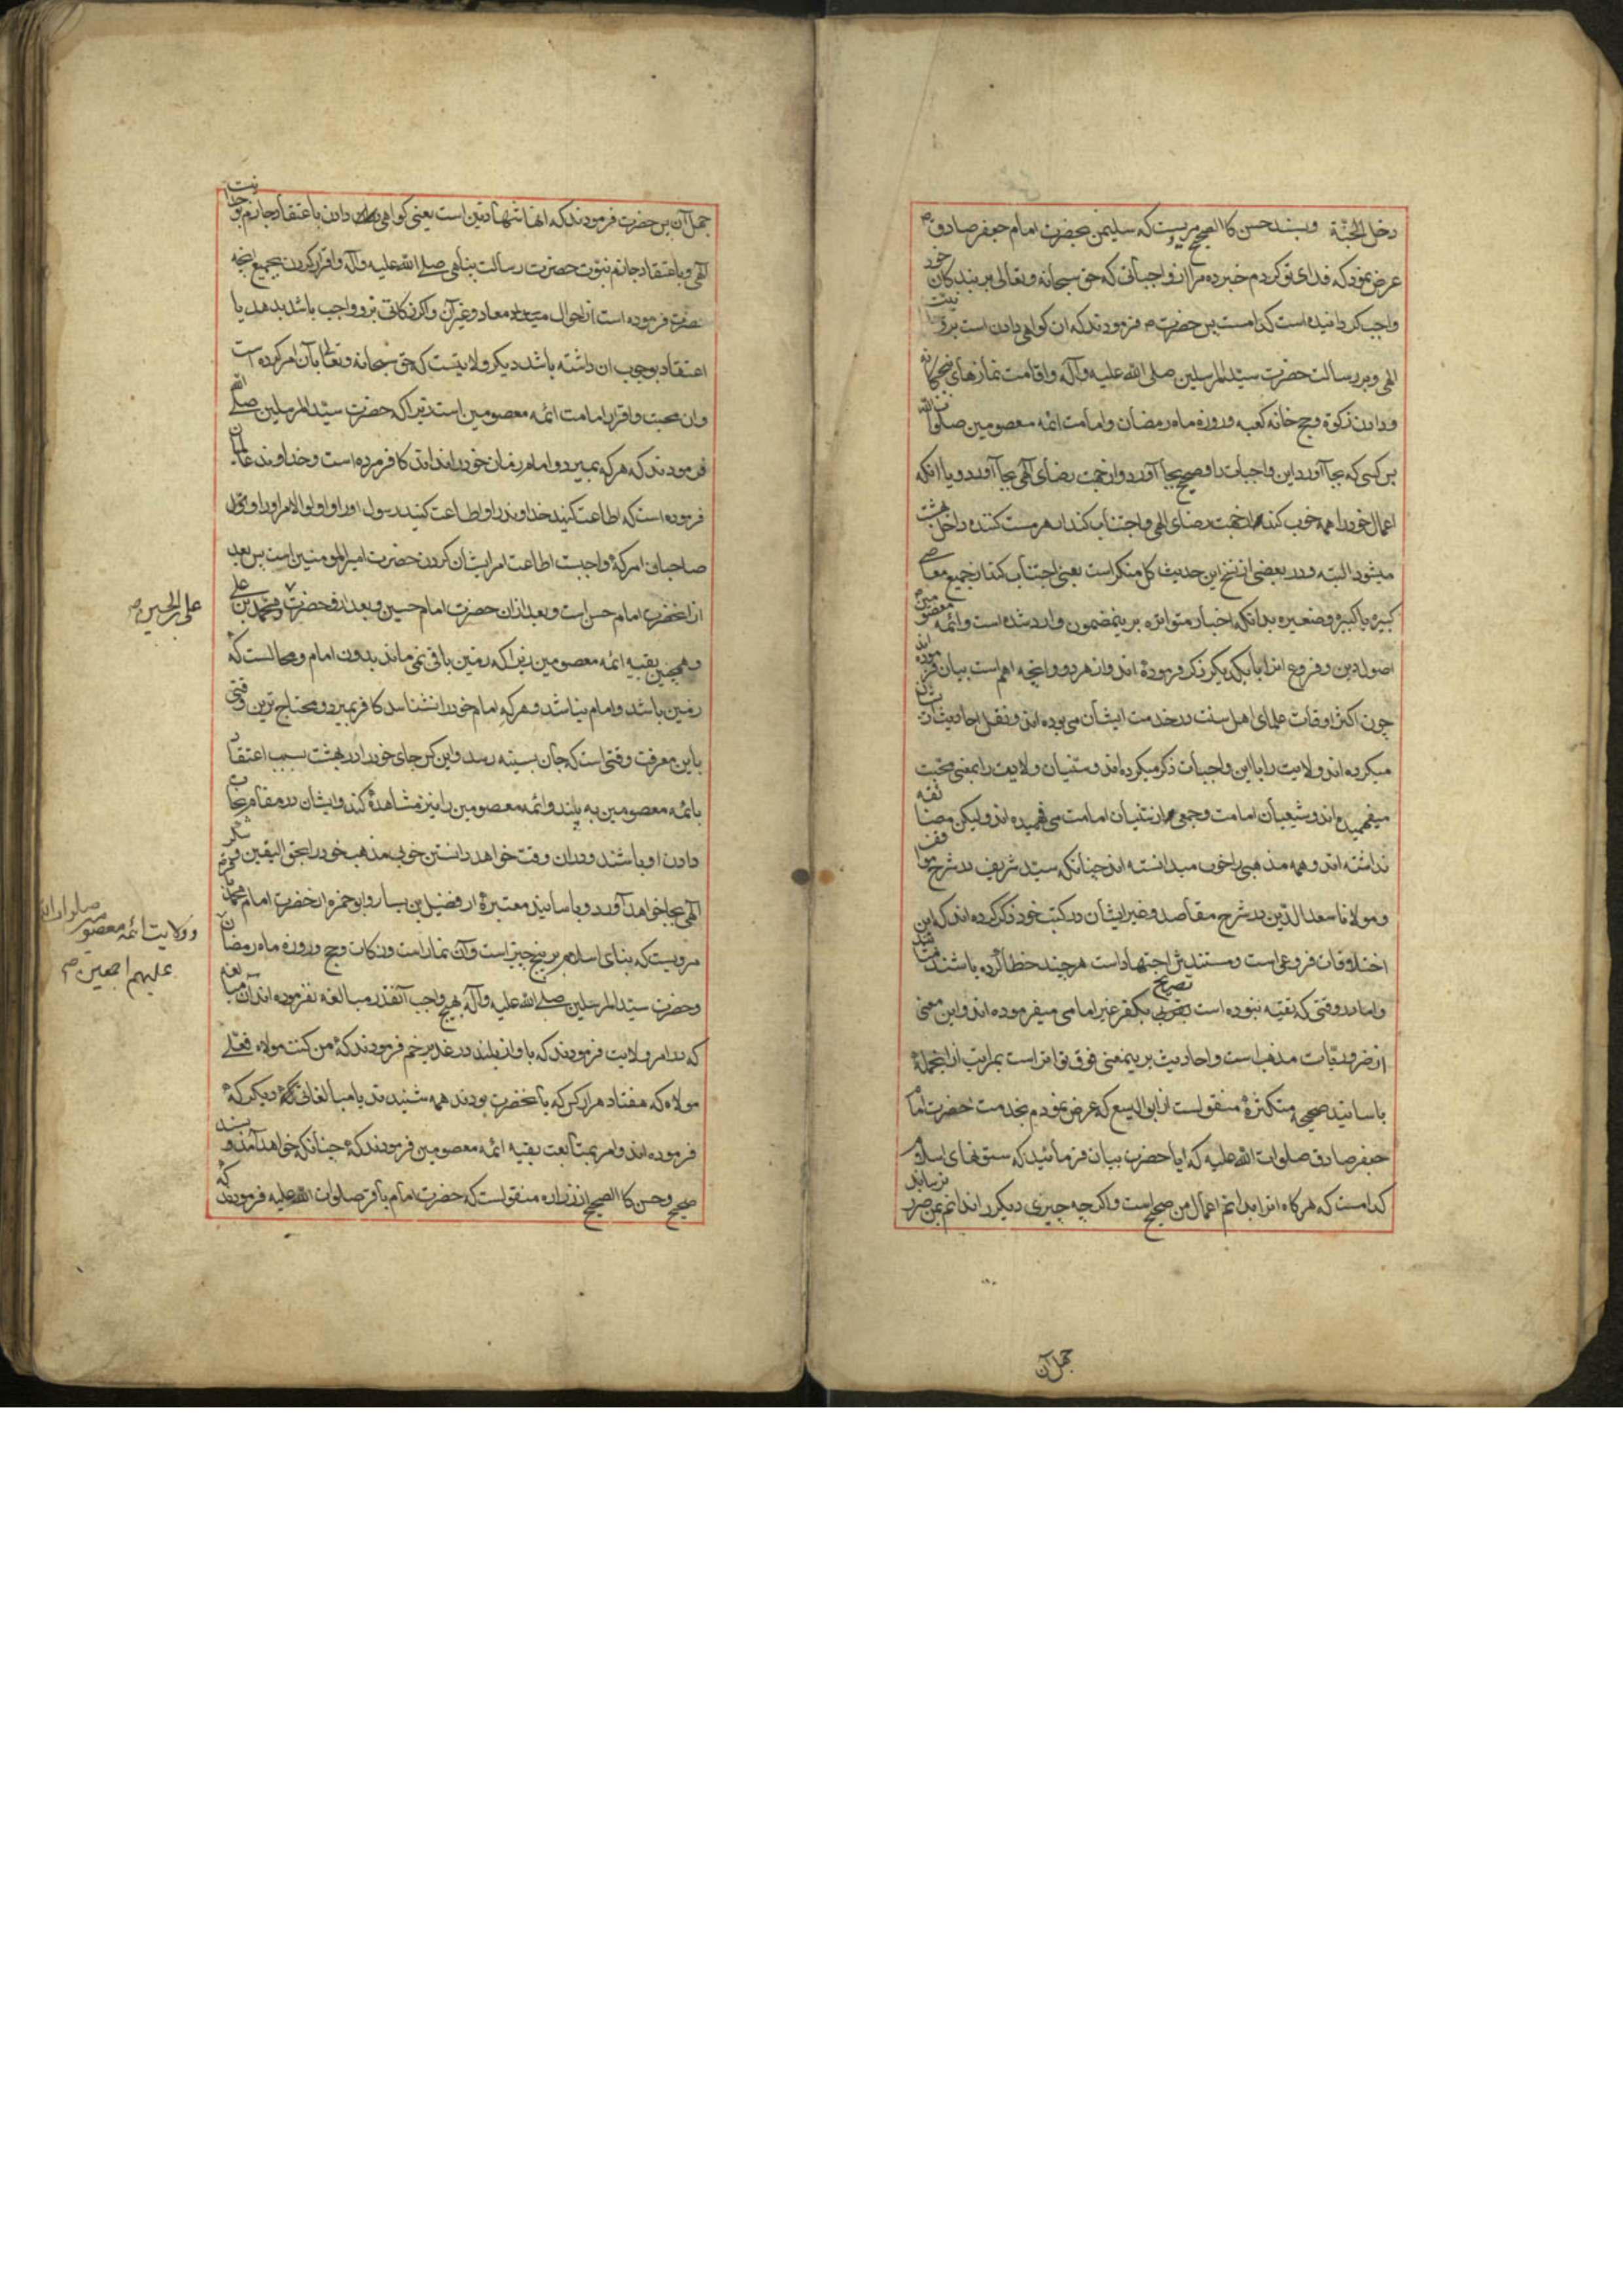 دخل الجنّة وبسند حسن كالصحیح مرویست که سلیمن بحضرت امام جعفر صادق ص
عرض نمود که فدای تو کردم خبر ده مرا از واجباتی که حق سبحانه وتعالی بر بندکان خود
واجب کردانیده است کدامست پس حضرت ص فرمودند که ان کواهی دادن است بر وحدانیت
الهی و بر رسالت حضرت سیّد المرسلین صلی الله علیه وآله واقامت نمازهای پنجکانه
ودادن زکوة وحج خانه کعبه وروزه ماه رمضان وامامت ائمه معصومین صلوات الله
پس کسی که بجا آورد این واجبات را وصحیح بجا آورد واز جهت رضای الهی بجا آورد ویا انکه
اعمال خود را همه خوب کند از جهت رضای الهی واجتناب کند از هر مست کننده داخل بهشت
میشود البته ودر بعضی از نسخ این حدیث کل منکر است یعنی اجتناب کند از جمیع معاصی
کبیره یا کبیره وصغیره بدانکه اخبار متواتره بر ینمضمون وارد شده است وائمه معصومین
اصول دین وفروع انرا با یکدیکر ذکر فرمودۀ اند واز هر دو وانچه اهم است بیان فرموده اند
چون اکثر اوقات علمای اهل سنت در خدمت ایشان می بوده اند ونقل احادیث ایشان
میکرده اند ولایت را با این واجبات ذکر میکرده اند وسنیان ولایت را بمعنی محبت
میفهمیده اند وشیعیان امامت وجمعی از سنیان امامت می فهمیده اند ولیکن مضایقه
نداشته اند وهمه مذهبی را خوب میدانسته اند چنانکه سیّد شریف در شرح مواقف
ومولانا سعد الدّین در شرح مقاصد وغیر ایشان در کتب خود ذکر کرده اند که این
اختلافات فروعی است ومستندش اجتهاد است هر چند خطا کرده باشند
واما در وقتی که تقیّه نبوده است تصریح بکفر غیر امامی میفرموده اند واین معنی
از ضروریّات مذهب است واحادیث بر ینمعنی فوق تواتر است بمراتب از انجملۀ
باسانید صحیحه متکثرۀ منقولست از ابو الیسع که عرض نمودم بخدمت حضرت امام
جعفر صادق صلوات الله علیه که ایا حضرت بیان فرمائید که ستونهای اسلام
کدامست که هرکاه انرا بدانم اعمال من صحیح است واکرچه چیزی دیکر را ندانم بمن ضرر نرساند
جهل آن
جهل آن پس حضرت فرمودند که انها شهادتین است یعنی کواهی دادن باعتقاد جازم بوحدانیت
الهی وباعتقاد جازم نبوّت حضرت رسالت پناهی صلی الله علیه وآله واقرار کردن بجمیع انچه
حضرت فرموده است از احوال معاد وغیر آن واکر زکاتی برو واجب باشد بدهد یا
اعتقاد بوجوب ان داشته باشد دیکر ولایتیست که حق سبحانه وتعالی بآن امر کرده است
وان محبت واقرار امامت ائمه معصومین است زیرا که حضرت سیّد المرسلین صلی الله
فرمودند که هر که بمیرد وامام زمان خود را نداند کافر مرده است وخداوند عالمیان
فرموده است که اطاعت کنید خداوند را واطاعت کنید رسول او را واولوا الامر او را
صاحبان امر که واجبست اطاعت امر ایشان کردن حضرت امیر المومنین است پس بعد
از انحضرت امام حسن است وبعد از ان حضرت امام حسین وبعد از او حضرت ومحمد بن علی
علی بن الحسین ص
وهمچنین بقیه ائمه معصومین زیرا که زمین باقی نمی ماند بدون امام ومحالست که
زمین باشد وامام نباشد وهر که امام خود را نشناسد کافر بمیرد ومحتاج ترین وقتی
باین معرفت وقتی است که جان بسینه رسد واین کس جای خود را در بهشت بسبب اعتقاد
بائمه معصومین به بیند وائمه معصومین را نیز مشاهدۀ کند وایشان در مقام بجات
دادن او باشند ودر ان وقت خواهد دانستن خوبی مذهب خود را بحق الیقین وشکر
الهی بجا خواهد آورد وباسانید معتبرۀ از فضیل بن یسار وابو حمزه از حضرت امام محمد باقر
مرویست که بنای اسلام بر پنج چیز است وآن نماز است وزکات وحج وروزه ماه رمضان
وولایت ائمه معصومین صلوات الله
علیهم اجمعین ص
وحضرت سیّد المرسلین صلی الله علیه وآله بهیچ واجب آنقدر مبالغه نفرموده اند
که در امر ولایت فرمودند که باواز بلند در غدیر خم فرمودند که من کنت مولاه فعلی
مولاه که هفتاد هزار کس که با نحضرت بودند همه شنیدند یا مبالغاتی دیکر که
فرموده اند وامر بمتابعت بقیه ائمه معصومین فرمودند که چنانکه خواهد آمد وبسند
صحیح وحسن کالصحیح از زراره منقولست که حضرت امام باقر صلوات الله علیه فرمودند که